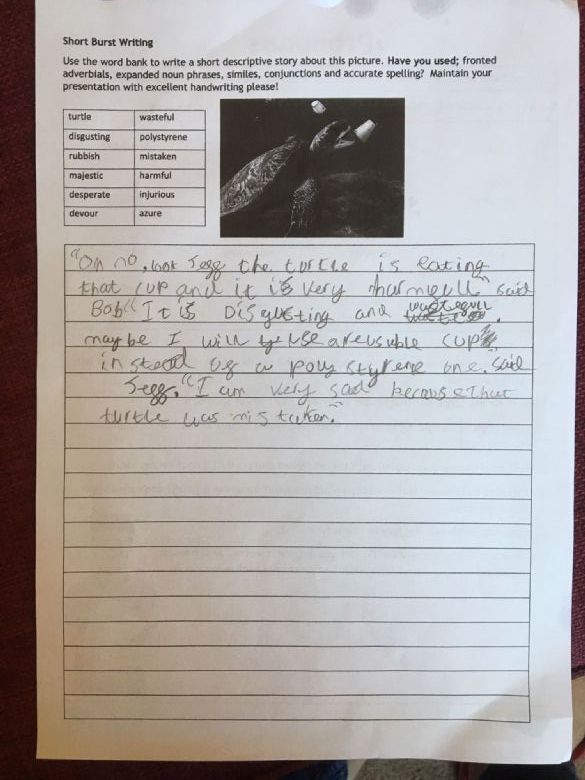 Short Burst Writing
Use the word bank to write a short descriptive story about this picture. Have you used; fronted
adverbials, expanded noun phrases, similes, conjunctions and accurate spelling? Maintain your
presentation with excellent handwriting please!
turtle wasteful
disgusting polystyrene
rubbish mistaken
majestic harmful
desperate injurious
devour azure
"Oh no, look Jeff the turtle is eating
that cup and it is very harmfull" said
Bob "It is Disgusting and wastefull
maybe I will use a reusuble cup
instead of a polystyrene one. said
Jeff. "I am very sad because that
turtle was mistaken."